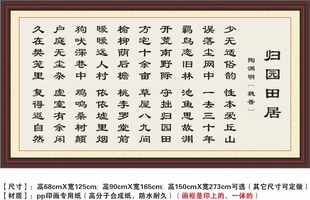 归园田居
陶渊明〔魏晋〕
少无适俗韵 性本爱丘山
误落尘网中 一去三十年
羁鸟恋旧林 池鱼思故渊
开荒南野际 守拙归园田
方宅十余亩 草屋八九间
榆柳荫后檐 桃李罗堂前
暧暧远人村 依依墟里烟
狗吠深巷中 鸡鸣桑树颠
户庭无尘杂 虚室有余闲
久在樊笼里 复得返自然
【尺寸】：高68cmX宽125cm；高90cmX宽165cm；高150cmX宽273cm可选（其它尺寸可定做）
【材质】：pp印画专用纸（高分子合成纸，防水耐久）（画框是印上的，一体的）